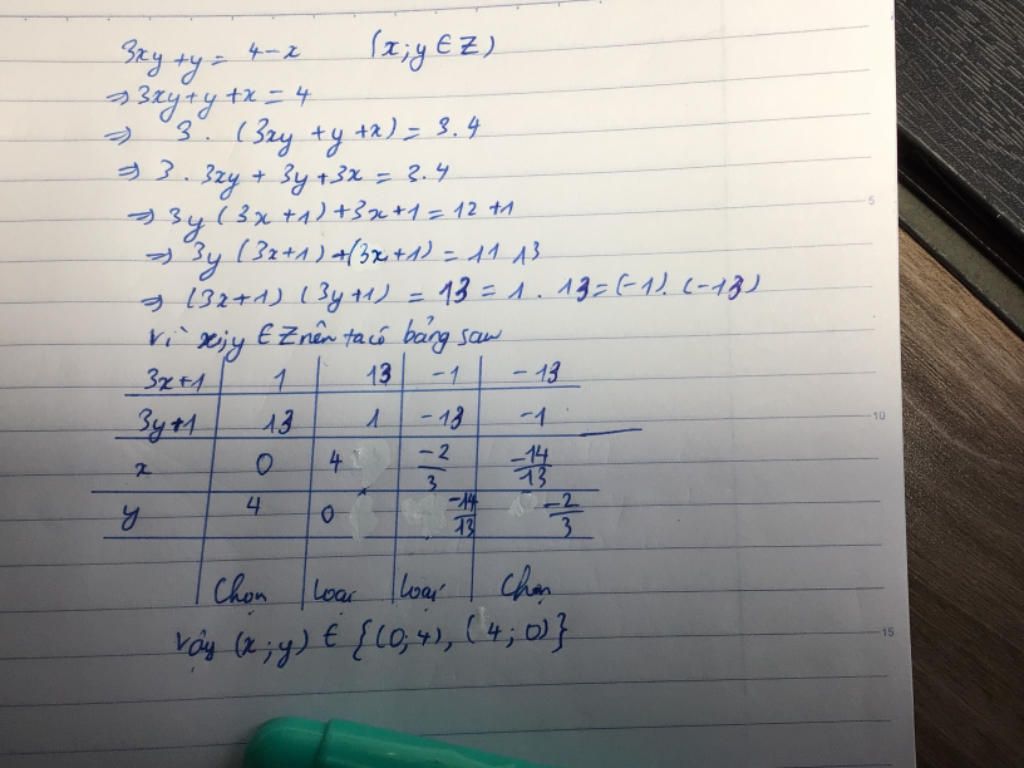 3xy + y = 4 - x (x; y ∈ Z)
⇒ 3xy + y + x = 4
⇒ 3. (3xy + y + x) = 3.4
⇒ 3. 3xy + 3y + 3x = 3.4
⇒ 3y (3x + 1) + 3x + 1 = 12 + 1
⇒ 3y (3x + 1) + (3x + 1) = 11 13
⇒ (3x + 1) (3y + 1) = 13 = 1 . 13 = (-1). (-13)
Vì x; y ∈ Z nên ta có bảng sau
3x+1 1 13 -1 -13
3y+1 13 1 -13 -1
x 0 4 -2/3 -14/13
y 4 0 -14/13 -2/3
Chọn loại loại Chọn
Vậy (x; y) ∈ {(0; 4), (4; 0)}
5
10
15